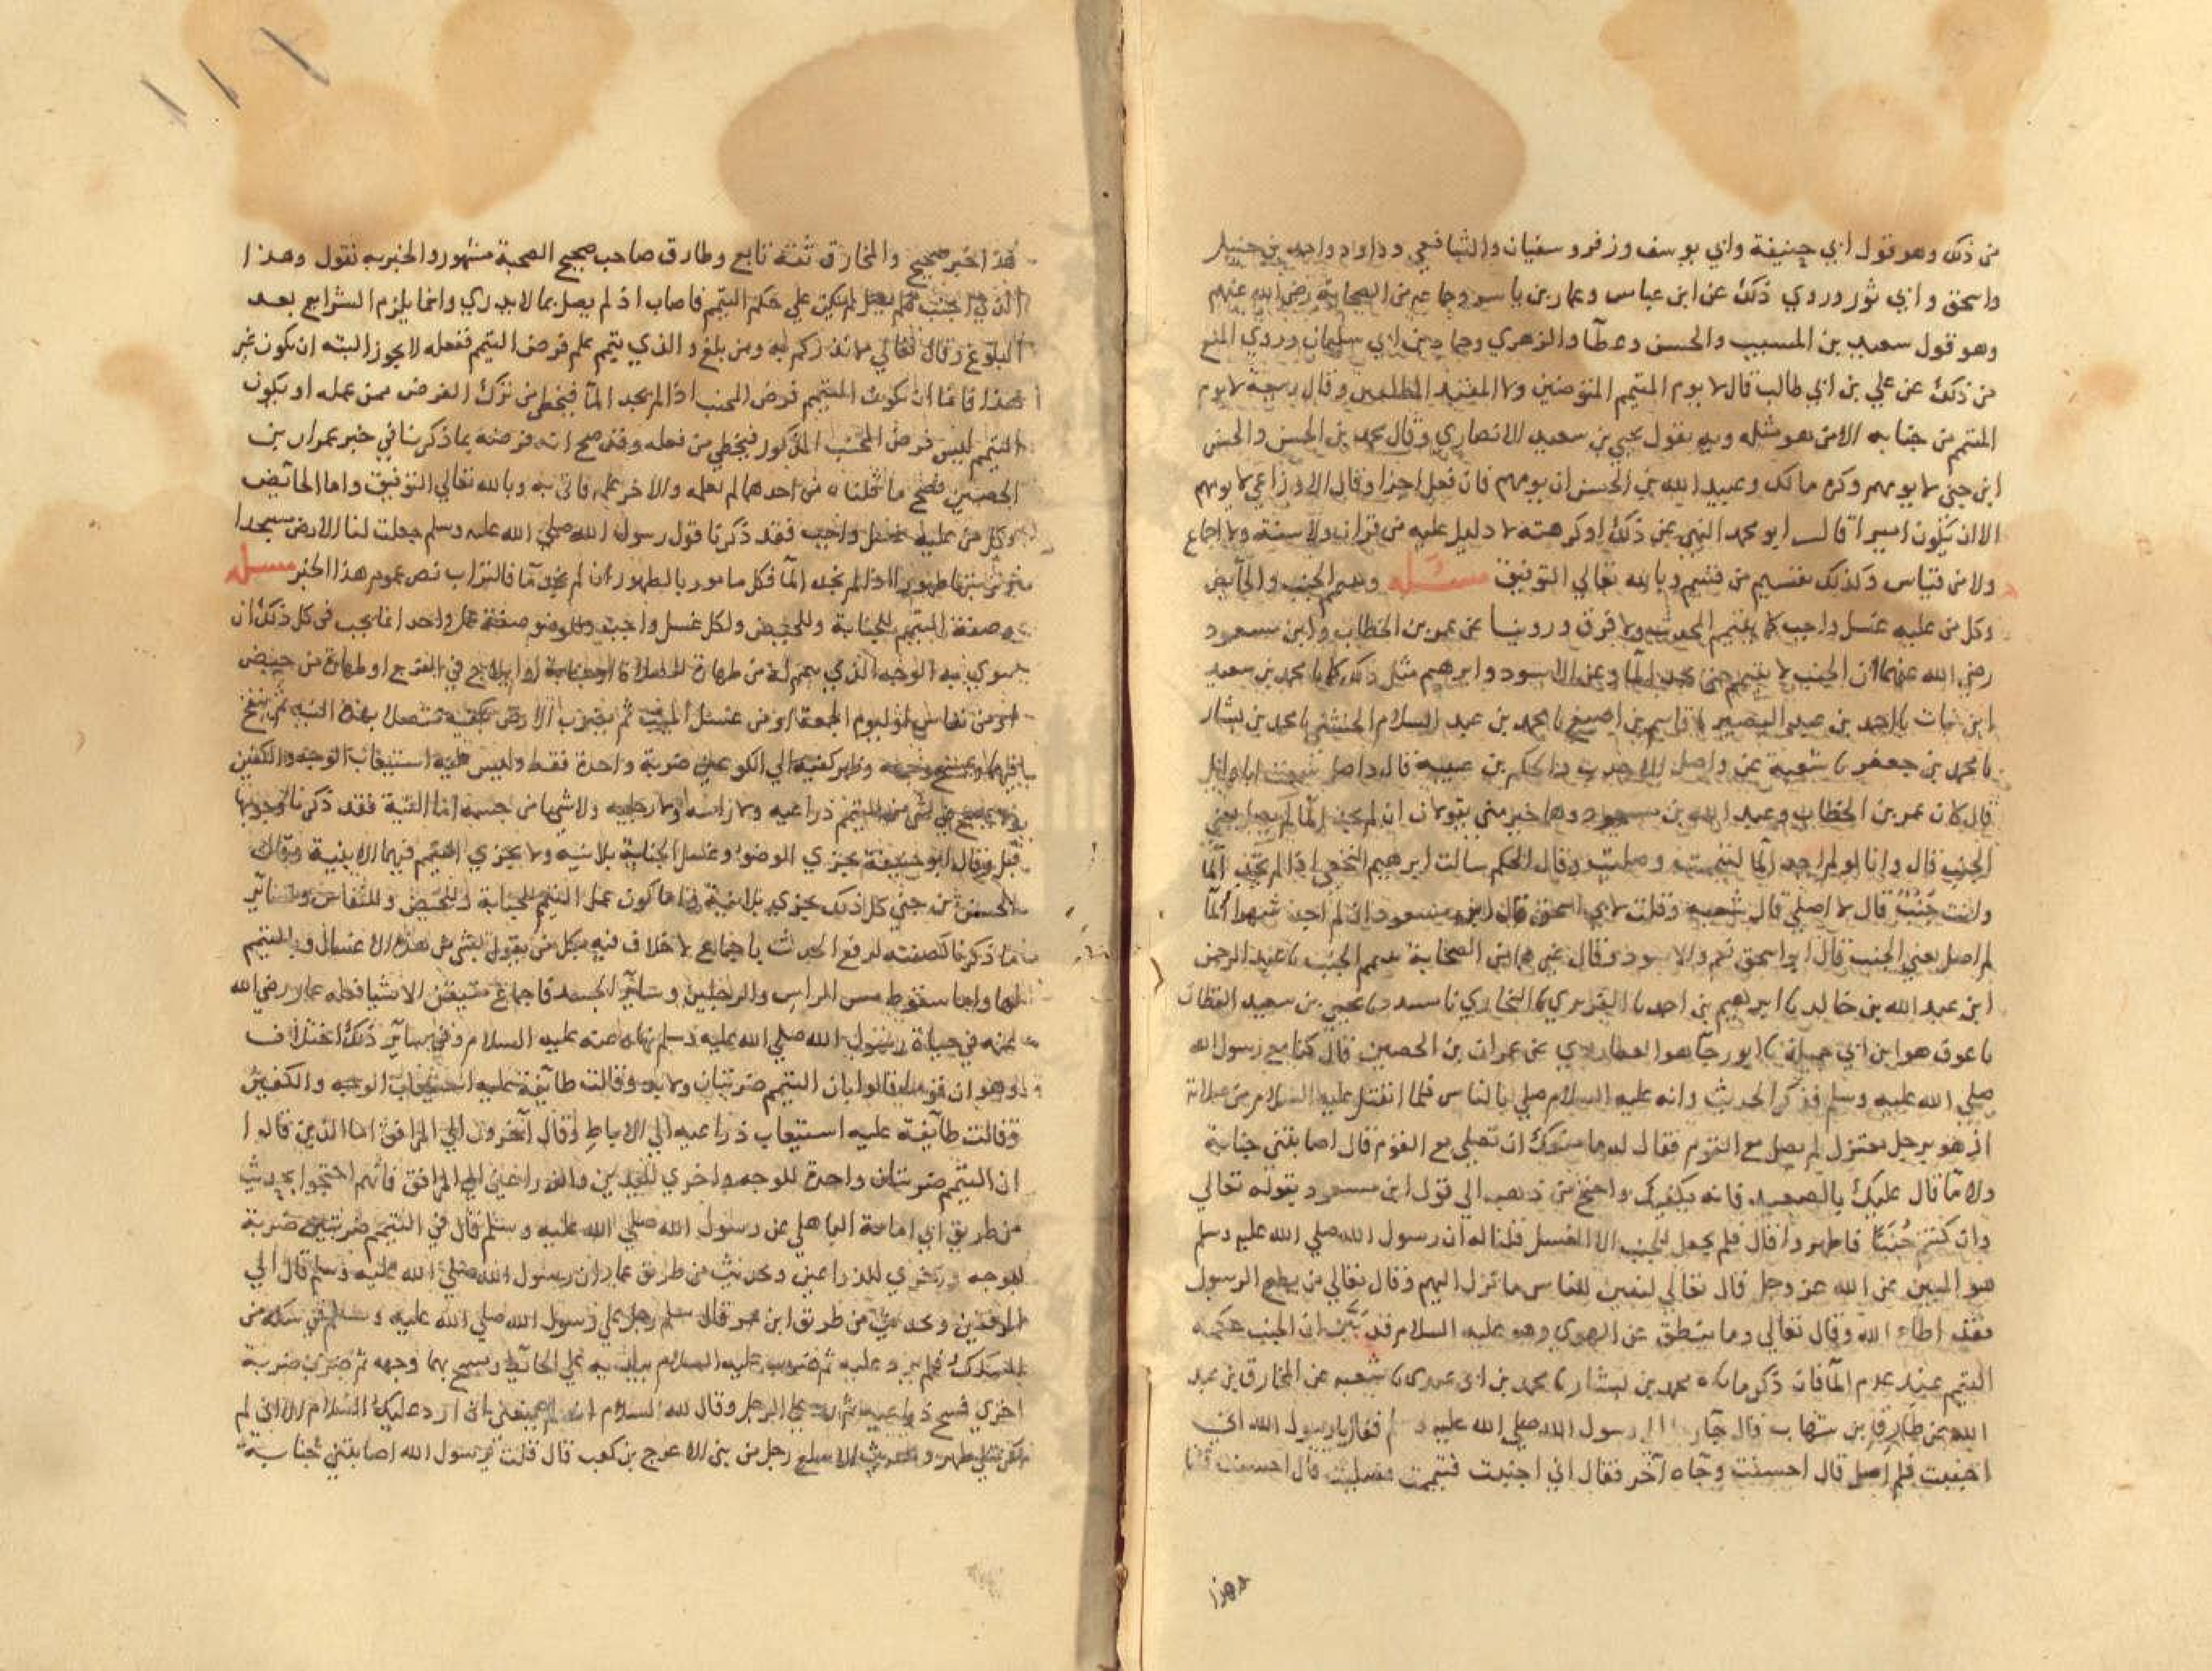 من ذلك وهو قول ابي حنيفة وابي يوسف وزفر وسفيان والشافعي وداود واحمد بن حنبل
واسحق وابي ثور وروي ذلك عن ابن عباس وعمار بن ياسر وجماعة من الصحابة رضي الله عنهم
وهو قول سعيد بن المسيب والحسن وعطآ والزهري وحماد بن ابي سليمان وروي المنع
من ذلك عن علي بن ابي طالب قال لا يوم المتيمم المتوضين ولا المقيد المطلقين وقال ربيعة لا يوم
المتيمم من جنابه الا من هو مثله وبه يقول يحيي بن سعيد الانصاري وقال محمد بن الحسن والحسن
ابن حيي لا يومهم وكره مالك وعبيد الله بن الحسن ان يومهم فان فعل اجزا وقال الاوزاعي لا يومهم
الا ان يكون اميرا قال ابو محمد النهي عن ذلك او كرهته لا دليل عليه من قران ولا سنة ولا اجماع
ولا من قياس وكذلك تقسيم من قسم وبالله تعالي التوفيق مسئله ويتيمم الجنب والحآيض
وكل من عليه غسل واجب كما يتيمم المحدث ولا فرق وروينا عن عمر بن الخطاب وابن مسعود
رضي الله عنهما ان الجنب لا يتيمم حتي يجد المآ وعن الاسود وابرهيم مثل ذلك كما نا محمد بن سعيد
ابن نبات نا احمد بن عبد البصير نا قاسم بن اصبغ نا محمد بن عبد السلام الخشني نا محمد بن بشار
نا محمد بن جعفر نا شعبة عن واصل الاحدب نا الحكم بن عيينه قال واصل سمعت ابا وايل
قال كان عمر بن الخطاب وعبد الله بن مسعود وهما خير مني يقولان ان لم يجد المآ لم يصل يعني
الجنب قال وانا لو لم اجد المآ لتيممت وصليت وقال الحكم سالت ابرهيم النخعي اذا لم تجد المآ
وانت جنب قال لا اصلي قال شعبه وقلت لابي اسحق قال ابن مسعود ان لم اجد شهرا المآ
لم اصل يعني الجنب قال ابو اسحق نعم والاسود وقال غيرهما من الصحابة يتيمم الجنب نا عبد الرحمن
ابن عبد الله بن خالد نا ابرهيم بن احمد نا الفربري نا البخاري نا مسدد نا يحيي بن سعيد القطان
نا عوف هو ابن ابي جميلة نا ابو رجآ هو العطاردي عن عمران بن الحصين قال كنا مع رسول الله
صلي الله عليه وسلم فذكر الحديث وانه عليه السلام صلي بالناس فلما انفتل عليه السلام من صلاته
اذ هو برجل معتزل لم يصل مع القوم فقال له ما منعك ان تصلي مع القوم قال اصابتني جنابة
ولا مآ قال عليك بالصعيد فانه يكفيك واحتج من ذهب الي قول ابن مسعود بقوله تعالي
وان كنتم جُنبًا فاطهروا قال فلم يجعل للجنب الا الغسل قلنا له ان رسول الله صلي الله عليه وسلم
هو المبين عن الله عز وجل قال تعالي لتبين للناس ما نزل اليهم وقال تعالي من يطع الرسول
فقد اطاع الله وقال تعالي وما ينطق عن الهوي وهو عليه السلام قد بيّن ان الجنب حكمه
التيمم عند عدم المآ فان ذكر ما ناه محمد بن بشار نا محمد بن ابي عدي نا شعبه عن المخارق بن عبد
الله عن طارق بن شهاب قال جآ رسول الله صلي الله عليه فقال يا رسول الله اني
اجنبت فلم اصل قال احسنت وجآه آخر فقال اني اجنبت فتيممت فصليت قال احسنت قلنا
وهذا
هذا خبر صحيح والمخارق ثقة تابع وطارق صاحب صحيح الصحبة مشهور والخبر به نقول وهذا
الذي اجنب فلم يصل لم يكن علي حكم التيمم فاصاب اذ لم يصل بما لا يدري وانما يلزم الشرايع بعد
البلوغ وقال تعالي لانذركم به ومن بلغ والذي تيمم علم فرض التيمم ففعله لا يجوز البته ان يكون غير
هذا فاما ان يكون التيمم فرض المجنب اذا لم يجد المآ فيخطي من ترك الفرض ممن عمله او يكون
التيمم ليس فرض المجنب المذكور فيخطي من فعله وقد صح انه فرضه بما ذكرنا في خبر عمران بن
الحصين فصح ما قلناه من احدهما لم يعلمه والاخر علمه فاتي به وبالله تعالي التوفيق واما الحآيض
وكل من عليه غسل واجب فقد ذكرنا قول رسول الله صلي الله عليه وسلم جعلت لنا الارض مسجدا
وتربتها طهورا اذا لم نجد المآ فكل مامور بالطهور ان لم يجد مآ فالتراب نص عموم هذا الخبر مسئله
وصفة التيمم للجنابة وللحيض ولكل غسل واجب وللوضو صفة عمل واحد انما يجب في كل ذلك ان
ينوي به الوجه الذي يتيمم له من طهارة للصلاة او جنابة او ايلاج في الفرج او طهارة من حيض
او من نفاس او ليوم الجمعة او من غسل الميت ثم يضرب الارض بكفيه متصلا بهذه النيه ثم ينفخ
فيهما ويمسح وجهه وظهر كفيه الي الكوعين ضربة واحدة فقط وليس عليه استيعاب الوجه والكفين
ولا يمسح في شي من التيمم ذراعيه ولا راسه ولا رجليه ولا شيا من جسمه اما النية فقد ذكرنا وجوبها
قبل وقال ابو حنيفة يجزي الوضو وغسل الجنابة بلا نيه ولا يجزي التيمم فيهما الا بنية وقال
الحسن بن حيي كل ذلك يجزي بلا نية واما كون عمل التيمم للجنابة وللحيض وللنفاس ولسآير
ما ذكرنا كصفته لرفع الحدث باجماع لا خلاف فيه بكل من يقول بشي من هذه الاغسال وبالتيمم
لها واما سقوط مسح الراس والرجلين وسآير الجسد فاجماع متيقن الا شيا فعله عمار رضي الله
عنه في حياة رسول الله صلي الله عليه وسلم نهاه عنه عليه السلام وفي سآير ذلك اختلاف
وهو ان قوما قالوا بان التيمم ضربتان ولا بد وقالت طآيفة عليه استيعاب الوجه والكفين
وقالت طآيفة عليه استيعاب ذراعيه الي الاباط وقال آخرون الي المرافق اما الذين قالوا
ان التيمم ضربتان واحدة للوجه واخري لليدين والذراعين الي المرافق فانهم احتجوا بحديث
من طريق ابي امامة الباهلي عن رسول الله صلي الله عليه وسلم قال في التيمم ضربتين ضربة
للوجه واخري للذراعين وحديث من طريق عمار ان رسول الله صلي الله عليه وسلم قال الي
المرفقين وحديث من طريق ابن عمر قال سلم رجل علي رسول الله صلي الله عليه وسلم في سكة من
السكك فلم يرد عليه ثم ضرب عليه السلام بيديه علي الحآيط ومسح بهما وجهه ثم ضرب ضربة
اخري فمسح ذراعيه ثم رد علي الرجل وقال له السلام انه لم يمنعني ان ارد عليك السلام الا اني لم
اكن علي طهر وحديث الاسلع رجل من بني الاعرج بن كعب قال قلت يرسول الله اصابتني جنابة